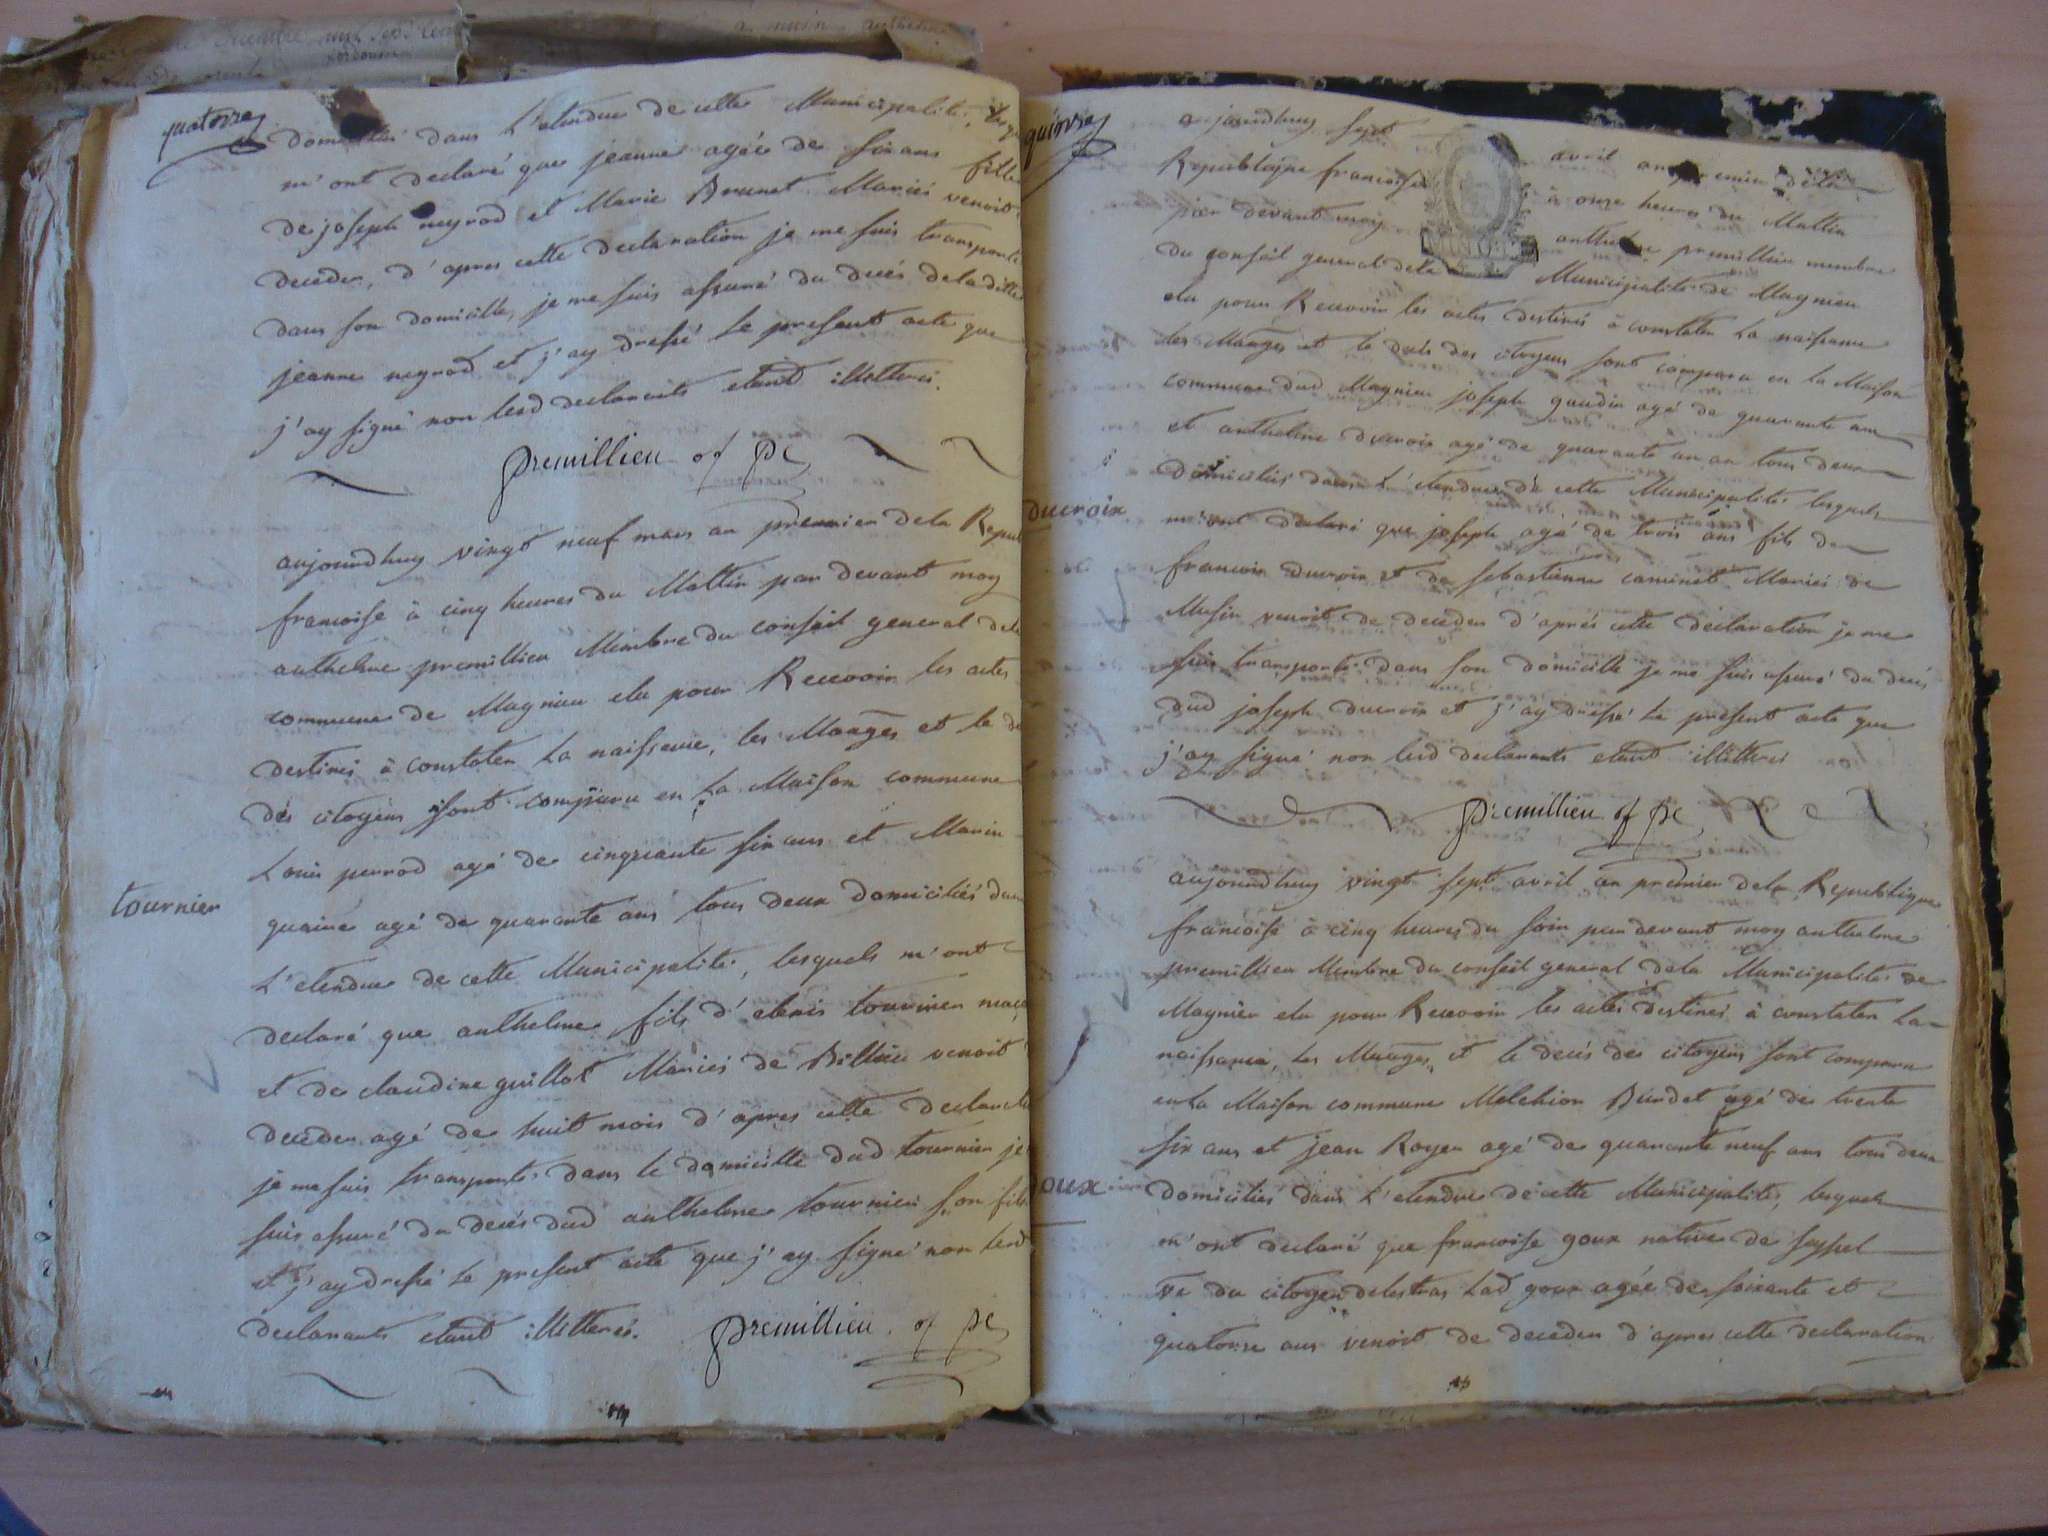 quatorze
domiciliés dans L'etendue de cette Municipalité,
m'ont declaré que jeanne agée de six ans fille
de joseph neyrod et Marie Brunet Mariés venoit
deceder, d'apres cette declaration je me suis transporté
dans son domicille, je me suis assuré du decés de laditte
jeanne neyrod et j'ay dressé le present acte que
j'ay signé non lesd declarants etant illitterés.
premillieu of pc
aujourdhuy vingt neuf mars an premier dela Repub
francoise à cinq heures du Mattin par devant moy
anthelme premillieu Membre du conseil general dela
commune de Magnieu elu pour Recevoir les actes
destinés à constater La naissance, les Mariages et le de
des citoyens sont comparu en La Maison commune
Louis perrod agé de cinquante six ans et Marin
quaine agé de quarante ans tous deux domiciliés dans
L'etendue de cette Municipalité, lesquels m'ont
tournier
declaré que anthelme fils d'alexis tournier maçon
et de claudine guillot Mariés de Billieu venoit
deceder agé de huit mois d'apres cette declarat
je me suis transporté dans le domicille dud tournier je
suis assuré du decés dud anthelme tournier son fils
et j'ay dressé Le present acte que j'ay signé non lesd
declarants etant illitterés. premillieu of pc
quinze
aujourdhuy sept avril an premier dela
Republique francoise à onze heures du Mattin
par devant moy anthelme premillieu membre
du conseil general dela Municipalité de Magnieu
elu pour Recevoir les actes destinés à constater La naissance
les Mariages et le decés des citoyens sont comparu en La Maison
commune dud Magnieu joseph gaudin agé de quarante ans
et anthelme ducroix agé de quarante un an tous deux
domiciliés dans L'etendue de cette Municipalité lesquels
ducroix
m'ont declaré que joseph agé de trois ans fils de
francois ducroix et de sebastienne caminet Mariés de
Musin venoit de deceder d'aprés cette declaration je me
suis transporté dans son domicille je me suis assuré du decés
dud joseph ducroix et j'ay dressé Le present acte que
j'ay signé non lesd declarants etant illitterés
premillieu of pc
aujourdhuy vingt sept avril an premier dela Republique
francoise à cinq heures du soir par devant moy anthelme
premillieu Membre du conseil general dela Municipalité de
Magnieu elu pour Recevoir les actes destinés à constater La
naissance, les Mariages, et le decés des citoyens sont comparu
en La Maison commune Melchior Burdet agé de trente
six ans et jean Royer agé de quarante neuf ans tous deux
oux
domiciliés dans L'etendue de cette Municipalité, lesquels
m'ont declaré que francoise goux native de seyssel
ve du citoyen delestras Lad goux agée de soixante et
quatorze ans venoit de deceder d'apres cette declaration